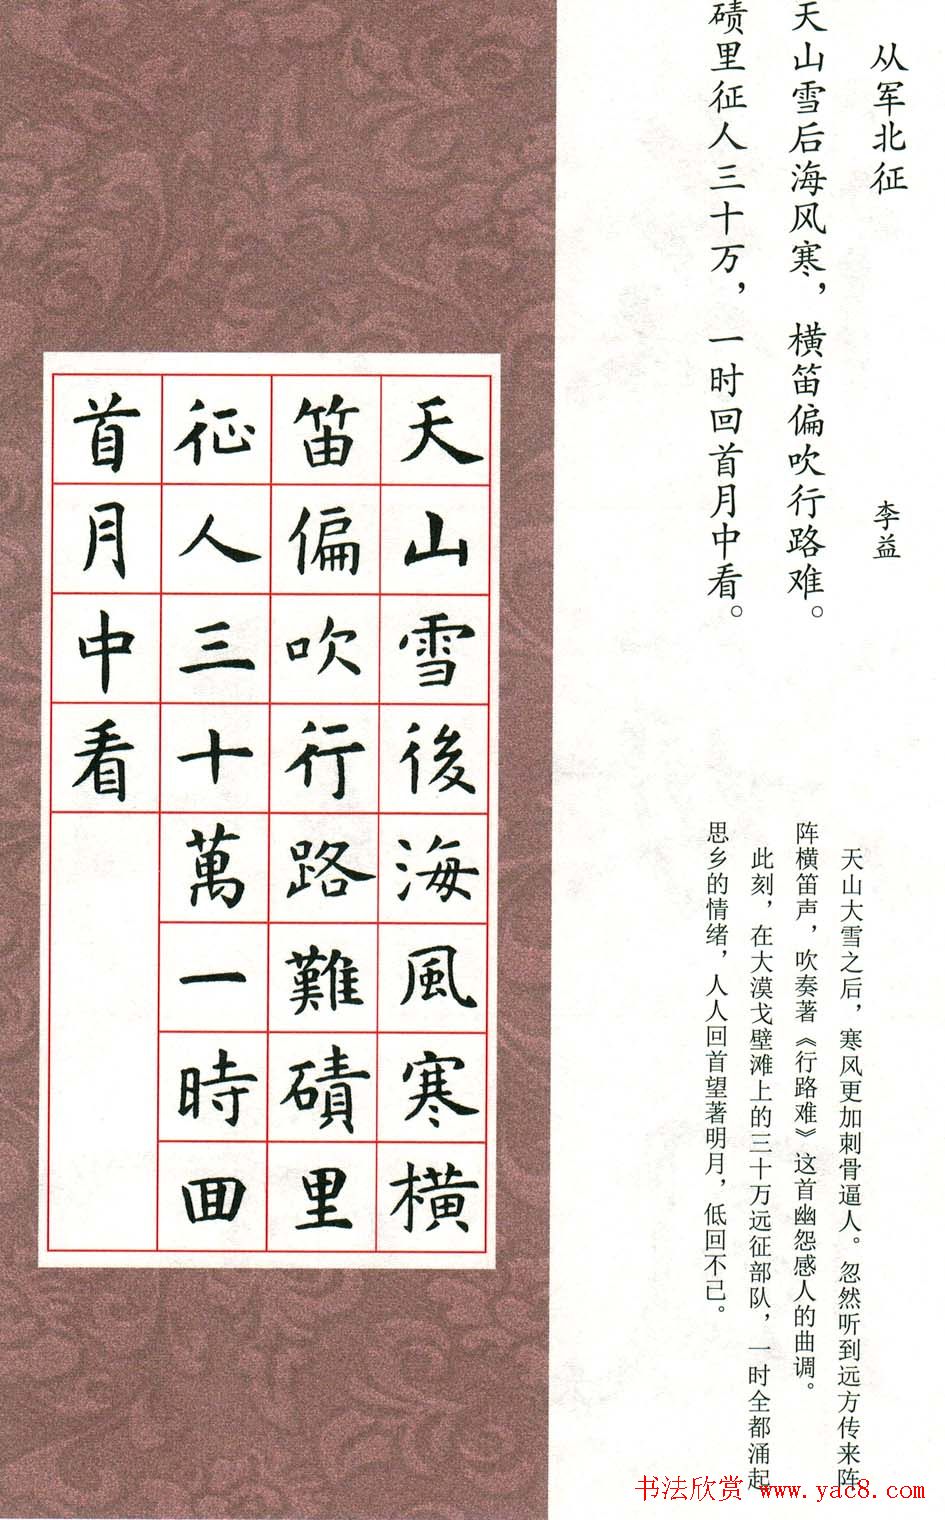 从军北征
李益
天山雪后海风寒，横笛偏吹行路难。
碛里征人三十万，一时回首月中看。
天山大雪之后，寒风更加刺骨逼人。忽然听到远方传来阵
阵横笛声，吹奏著《行路难》这首幽怨感人的曲调。
此刻，在大漠戈壁滩上的三十万远征部队，一时全都涌起
思乡的情绪，人人回首望著明月，低回不已。
天山雪後海風寒橫
笛偏吹行路難磧里
征人三十萬一時回
首月中看
书法欣赏 www.yac8.com